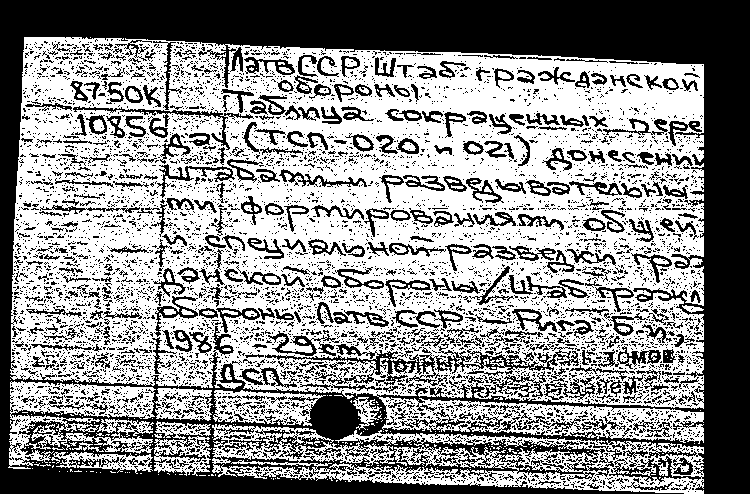 ЛатвССР. Штаб гражданской
обороны.
87-50К
Таблица сокращенных пере
10856
дач (ТСП-020 и 021) донесении
штабами и разведывательны-
ми формированиями общей
и специальной разведки граж
данской обороны / Штаб гражд
обороны Латв.ССР. - Рига: Б.и.,
1986 - 29 см
Полный томов,
ДСП